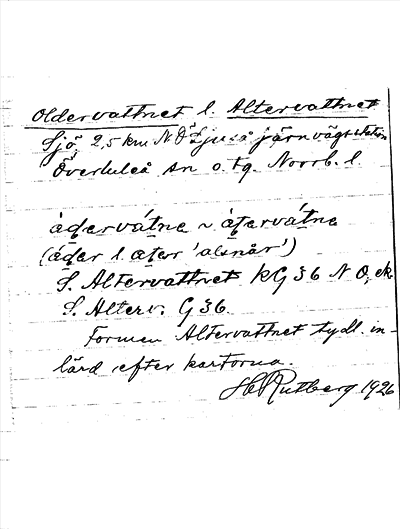 Oldervattnet l. Altervattnet
Sjö 2,5 km N Ö Ljuså järnvägsstation
Överluleå sn o. tg. Norrb. l.
àdervátne ~ àtervátne
(áder l. ater 'alsnår')
S. Altervattnet KG 36 N O, ek.
S. Alterv. G 36.
Formen Altervattnet tydl. in-
lärd efter kartorna.
H Rutberg 1926